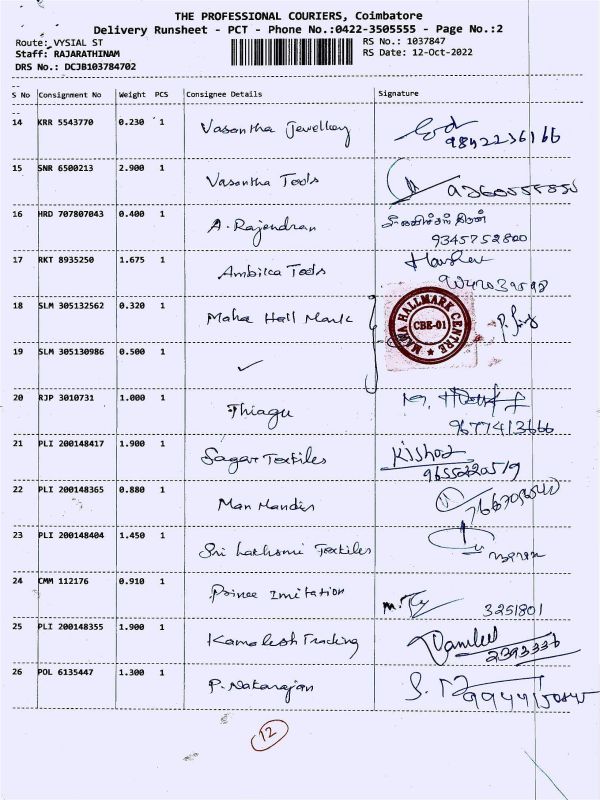 THE PROFESSIONAL COURIERS, Coimbatore
Delivery Runsheet - PCT - Phone No.:0422-3505555 - Page No.:2
Route: VYSIAL ST RS No.: 1037847
Staff: RAJARATHINAM RS Date: 12-Oct-2022
DRS No.: DCJB103784702
S No Consignment No Weight PCS Consignee Details Signature
14 KRR 5543770 0.230 1 Vasantha Jewellery
9842236166
15 SNR 6500213 2.900 1 Vasantha Tools
16 HRD 707807043 0.400 1 A. Rajendran
9345752800
17 RKT 8935250 1.675 1 Ambika Tools
18 SLM 305132562 0.320 1 Maha Hall Mark
MAHA HALLMARK CENTRE
CBE-01
19 SLM 305130986 0.500 1 ✓
20 RJP 3010731 1.000 1 Thiagu
9677413666
21 PLI 200148417 1.900 1 Sagar Textiles Kishor
22 PLI 200148365 0.880 1 Man Mandir
23 PLI 200148404 1.450 1 Sri Lakhsmi Textiles
24 CMM 112176 0.910 1 Prince Imitation
3251801
25 PLI 200148355 1.900 1 Kamalesh Trading
2393336
26 POL 6135447 1.300 1 P. Natarajan
12